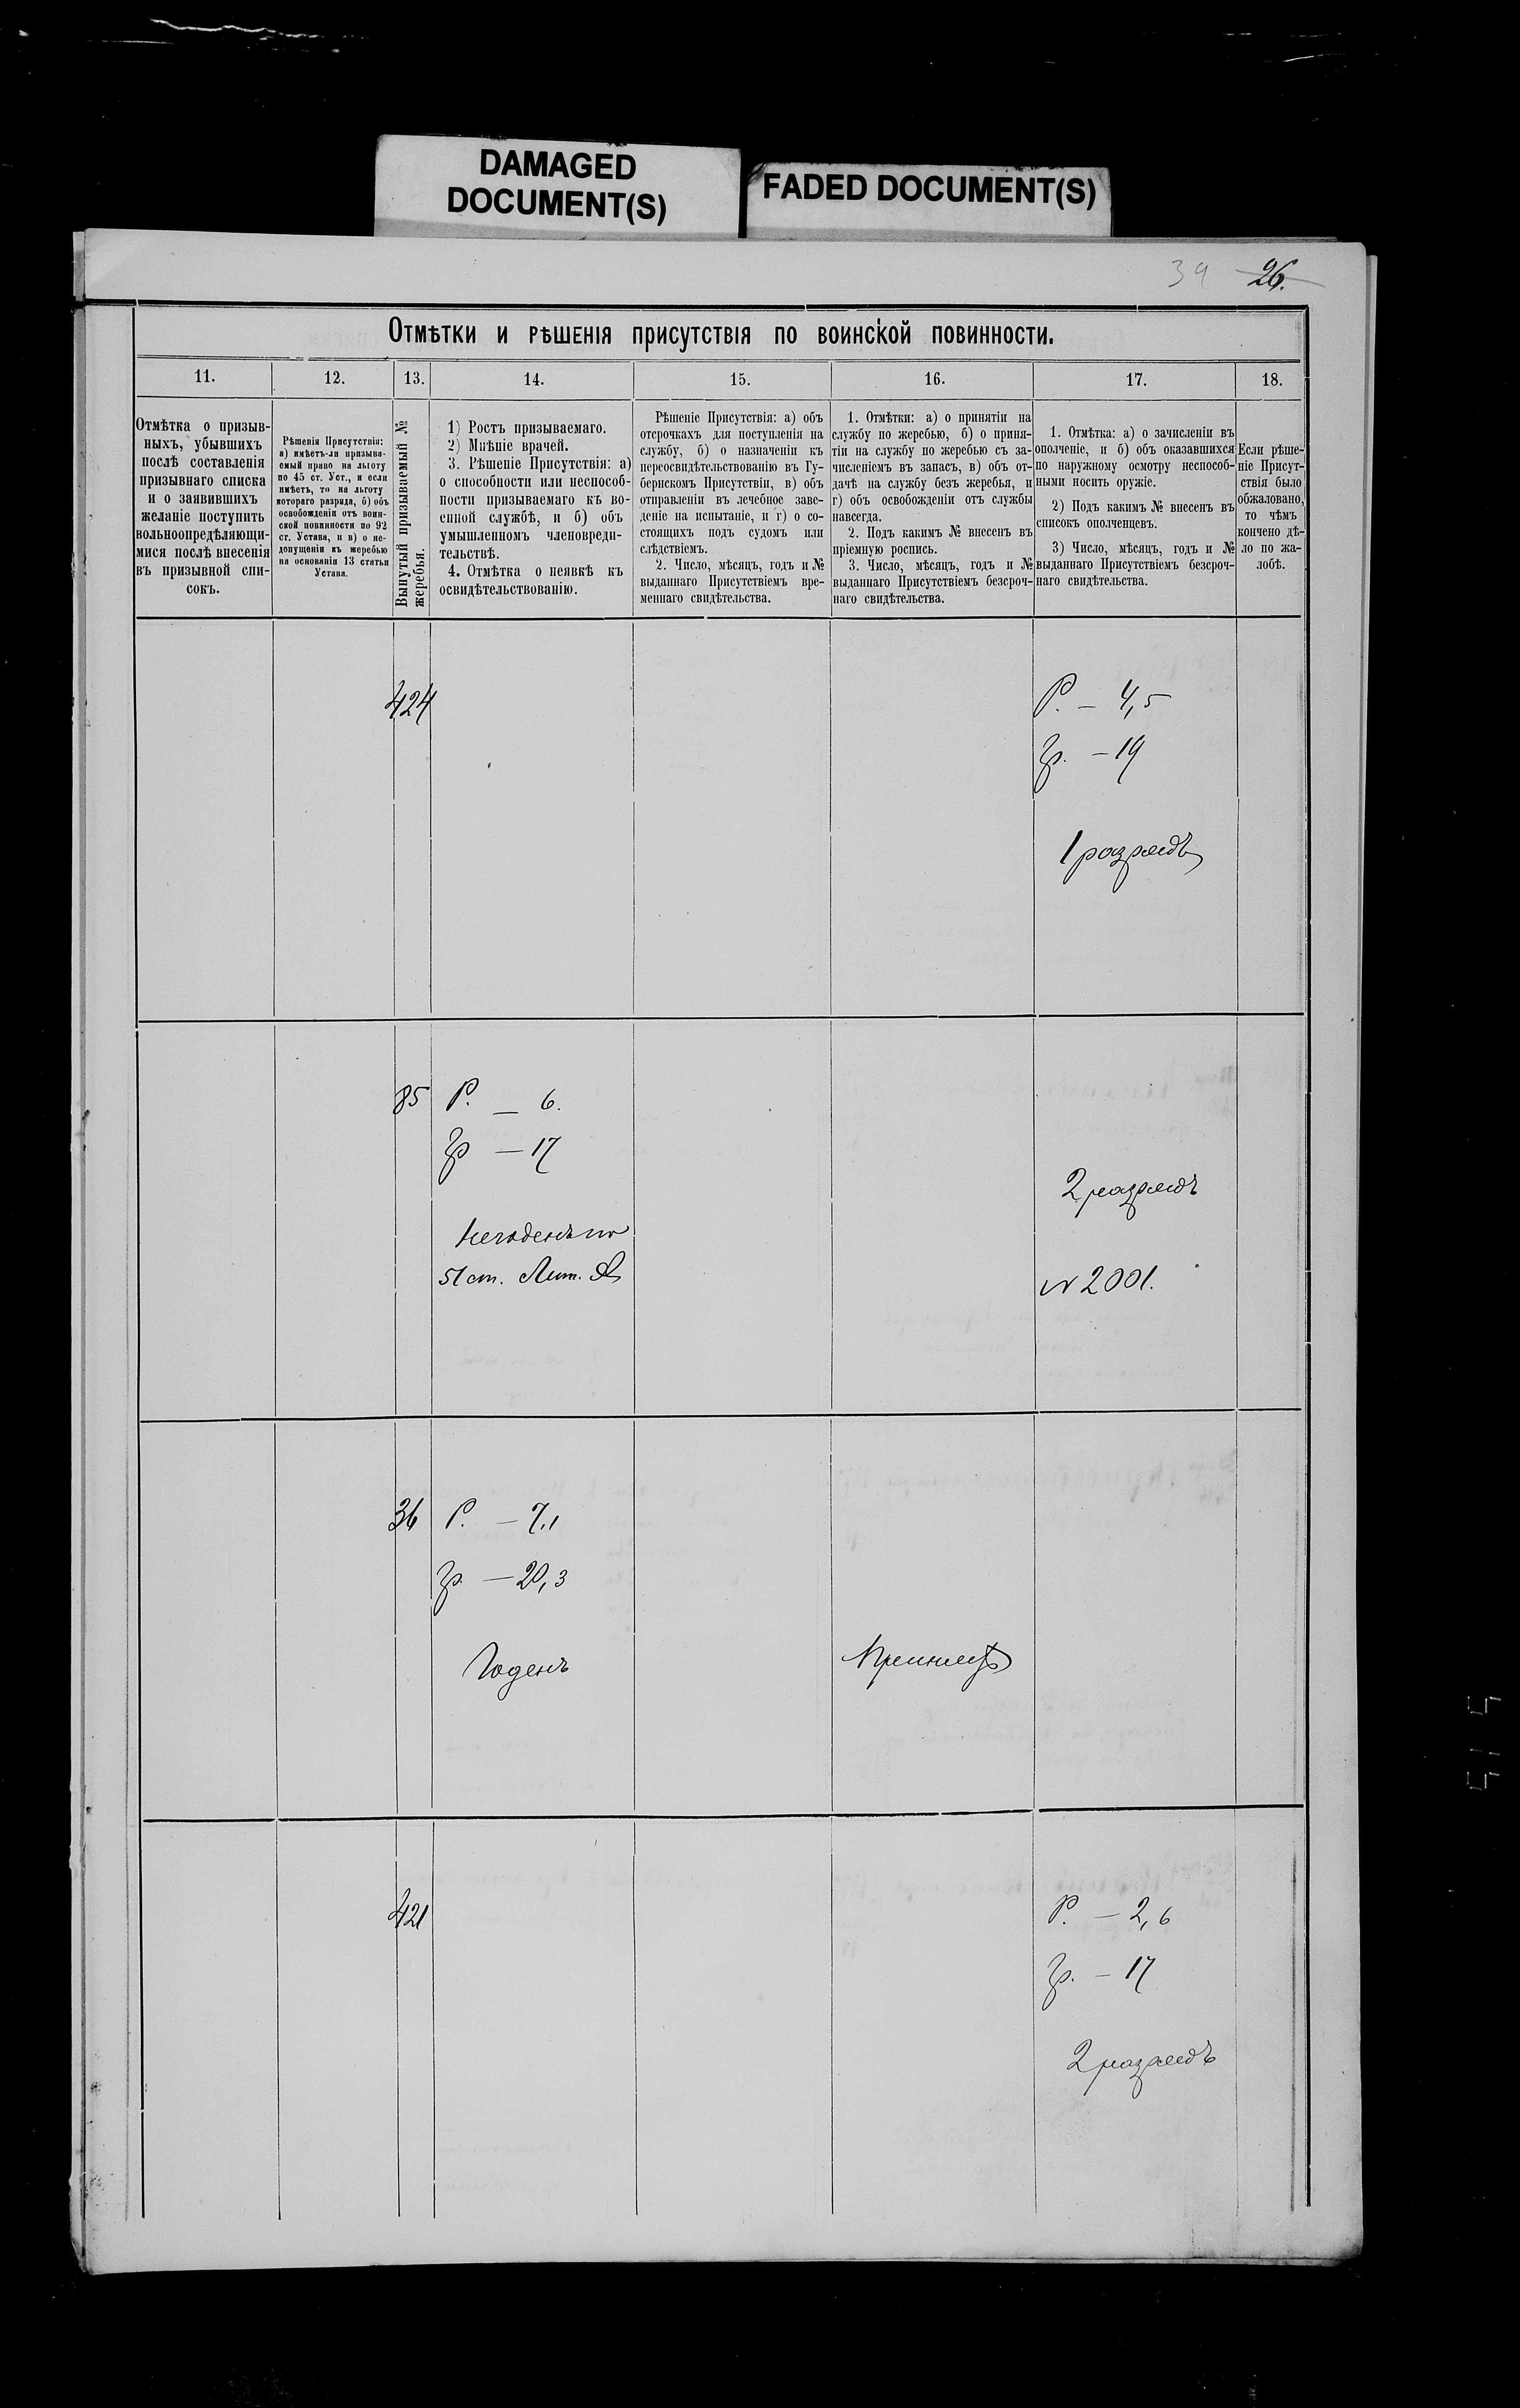 DAMAGED
DOCUMENT(S)
FADED DOCUMENT(S)
39 26.
Отмѣтки и рѣшенія присутствія по воинской повинности.
11. 12. 13. 14. 15. 16. 17. 18.
Отмѣтка о призыв-
ныхъ, убывшихъ
послѣ составленія
призывнаго списка
и о заявившихъ
желаніе поступить
вольноопредѣляющи-
мися послѣ внесенія
въ призывной спи-
сокъ.
Рѣшенія Присутствія:
а) имѣетъ-ли призыва-
емый право на льготу
по 45 ст. Уст., и если
имѣетъ, то на льготу
котораго разряда, б) объ
освобожденіи отъ воин-
ской повинности по 92
ст. Устава, и в) о не-
допущеніи къ жеребью
на основаніи 13 статьи
Устава.
Вынутый призываемый №
жеребья.
1) Ростъ призываемаго.
2) Мнѣніе врачей.
3. Рѣшеніе Присутствія: а)
о способности или неспособ-
ности призываемаго къ во-
енной службѣ, и б) объ
умышленномъ членовреди-
тельствѣ.
4. Отмѣтка о неявкѣ къ
освидѣтельствованію.
Рѣшеніе Присутствія: а) объ
отсрочкахъ для поступленія на
службу, б) о назначеніи къ
переосвидѣтельствованію въ Гу-
бернскомъ Присутствіи, в) объ
отправленіи въ лечебное заве-
деніе на испытаніе, и г) о со-
стоящихъ подъ судомъ или
слѣдствіемъ.
2. Число, мѣсяцъ, годъ и №
выданнаго Присутствіемъ вре-
меннаго свидѣтельства.
1. Отмѣтки: а) о принятіи на
службу по жеребью, б) о приня-
тіи на службу по жеребью съ за-
численіемъ въ запасъ, в) объ от-
дачѣ на службу безъ жеребья, и
г) объ освобожденіи отъ службы
навсегда.
2. Подъ какимъ № внесенъ въ
пріемную роспись.
3. Число, мѣсяцъ, годъ и №
выданнаго Присутствіемъ безсроч-
наго свидѣтельства.
1. Отмѣтка: а) о зачисленіи въ
ополченіе, и б) объ оказавшихся
по наружному осмотру неспособ-
ными носить оружіе.
2) Подъ какимъ № внесенъ въ
списокъ ополченцевъ.
3) Число, мѣсяцъ, годъ и №
выданнаго Присутствіемъ безсроч-
наго свидѣтельства.
Если рѣше-
ніе Присут-
ствія было
обжаловано,
то чѣмъ
кончено дѣ-
ло по жа-
лобѣ.
424 Р. – 4,5
Гр. – 19
1 разрядъ
85 Р. – 6.
Гр – 17
2 разрядъ
Негоденъ по
51 ст. Лит. А
№ 2001.
36 Р. – 7,1
Гр. – 20,3
Годенъ Принятъ
421 Р. – 2,6
Гр. – 17
2 разрядъ
515